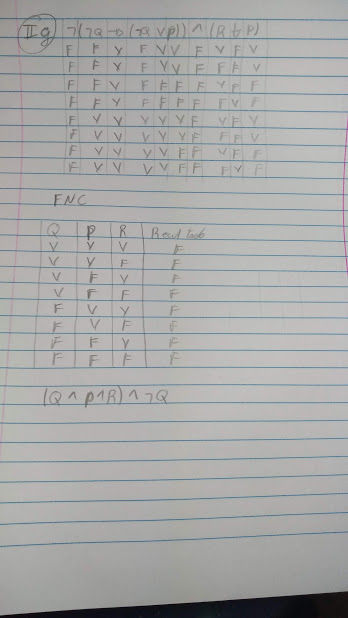 IIg ¬(¬Q → (¬Q ∨ P)) ∧ (R ↓ P)
F F V F V V F V F V
F F V F V V F F F V
F F V F F F F V F F
F F V F F F F F V F
F V V V V V F V F V
F V V V V V F F F V
F V V V V F F V F F
F V V V V F F F V F
FNC
Q P R Resultado
V V V F
V V F F
V F V F
V F F F
F V V F
F V F F
F F V F
F F F F
(Q ∧ P ∧ R) ∧ ¬Q